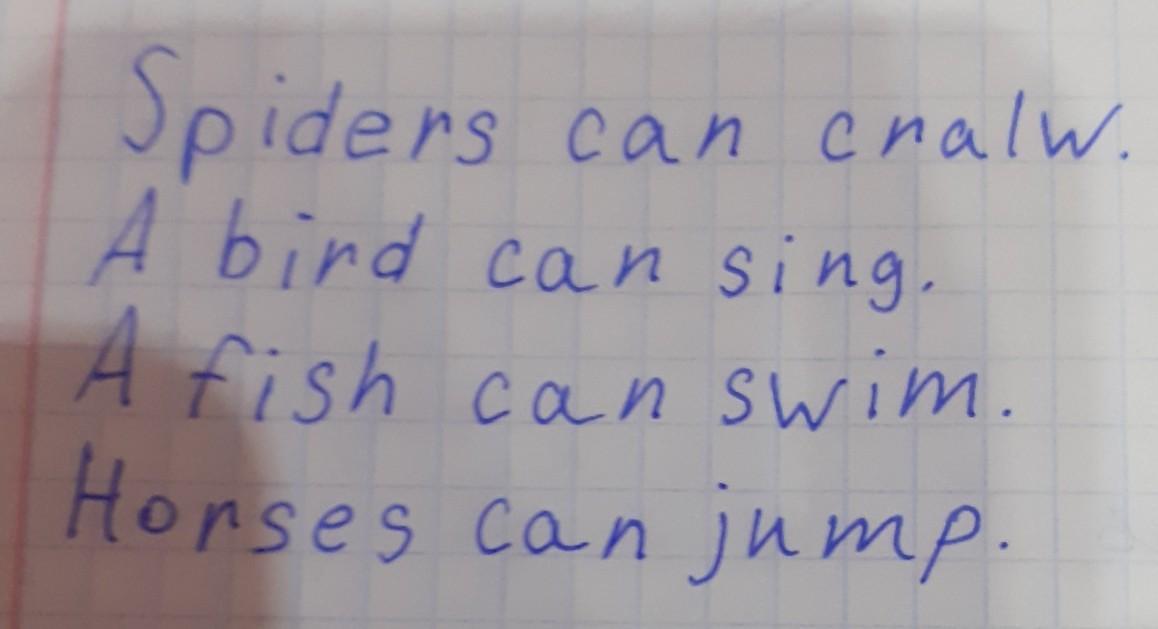 Spiders can cralw.
A bird can sing.
A fish can swim.
Horses can jump.